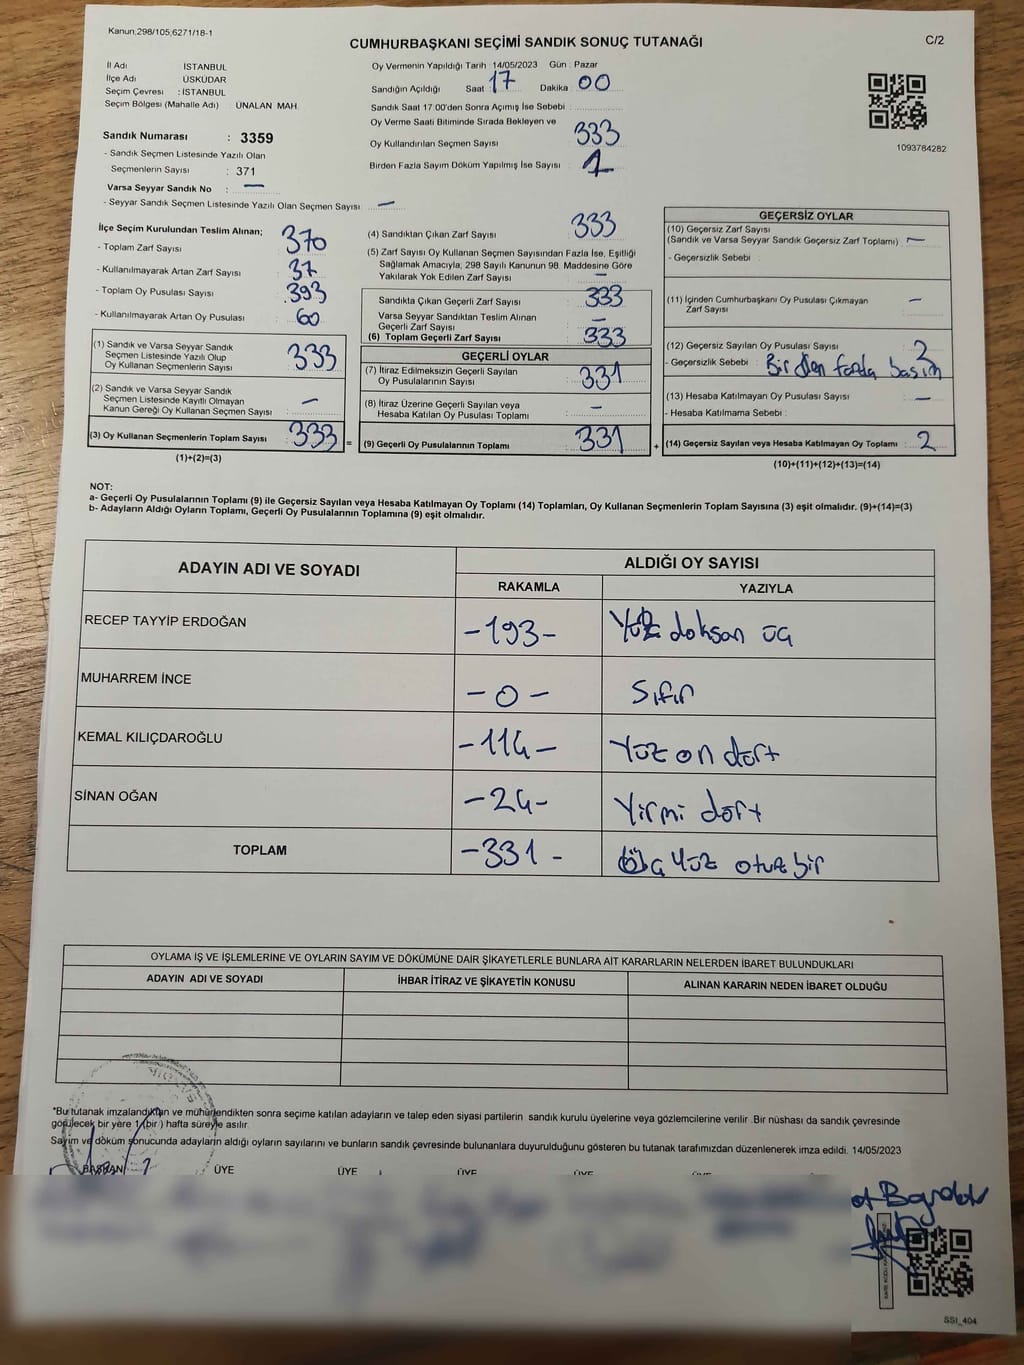 Kanun;298/105,6271/18-1
CUMHURBAŞKANI SEÇİMİ SANDIK SONUÇ TUTANAĞI
C/2
İl Adı İSTANBUL
İlçe Adı ÜSKÜDAR
Seçim Çevresi : İSTANBUL
Seçim Bölgesi (Mahalle Adı) : ÜNALAN MAH.
Sandık Numarası : 3359
- Sandık Seçmen Listesinde Yazılı Olan
Seçmenlerin Sayısı : 371
Varsa Seyyar Sandık No : —
- Seyyar Sandık Seçmen Listesinde Yazılı Olan Seçmen Sayısı : —
Oy Vermenin Yapıldığı Tarih : 14/05/2023 Gün : Pazar
Sandığın Açıldığı Saat : 17 Dakika : 00
Sandık Saat 17:00'den Sonra Açımış İse Sebebi :
Oy Verme Saati Bitiminde Sırada Bekleyen ve
Oy Kullandırılan Seçmen Sayısı 333
Birden Fazla Sayım Döküm Yapılmış İse Sayısı : 1
1093784282
İlçe Seçim Kurulundan Teslim Alınan;
- Toplam Zarf Sayısı 370
- Kullanılmayarak Artan Zarf Sayısı : 37
- Toplam Oy Pusulası Sayısı : 393
- Kullanılmayarak Artan Oy Pusulası : 60
(1) Sandık ve Varsa Seyyar Sandık
Seçmen Listesinde Yazılı Olup
Oy Kullanan Seçmenlerin Sayısı : 333
(2) Sandık ve Varsa Seyyar Sandık
Seçmen Listesinde Kayıtlı Olmayan
Kanun Gereği Oy Kullanan Seçmen Sayısı : —
(3) Oy Kullanan Seçmenlerin Toplam Sayısı : 333 =
(1)+(2)=(3)
(4) Sandıktan Çıkan Zarf Sayısı : 333
(5) Zarf Sayısı Oy Kullanan Seçmen Sayısından Fazla İse, Eşitliği
Sağlamak Amacıyla, 298 Sayılı Kanunun 98. Maddesine Göre
Yakılarak Yok Edilen Zarf Sayısı : —
Sandıkta Çıkan Geçerli Zarf Sayısı : 333
Varsa Seyyar Sandıktan Teslim Alınan
Geçerli Zarf Sayısı : —
(6) Toplam Geçerli Zarf Sayısı : 333
GEÇERLİ OYLAR
(7) İtiraz Edilmeksizin Geçerli Sayılan
Oy Pusulalarının Sayısı : 331
(8) İtiraz Üzerine Geçerli Sayılan veya
Hesaba Katılan Oy Pusulası Toplamı : —
(9) Geçerli Oy Pusulalarının Toplamı : 331 +
GEÇERSİZ OYLAR
(10) Geçersiz Zarf Sayısı
(Sandık ve Varsa Seyyar Sandık Geçersiz Zarf Toplamı) : —
- Geçersizlik Sebebi :
(11) İçinden Cumhurbaşkanı Oy Pusulası Çıkmayan
Zarf Sayısı : —
(12) Geçersiz Sayılan Oy Pusulası Sayısı : 2
- Geçersizlik Sebebi : Birden fazla basım
(13) Hesaba Katılmayan Oy Pusulası Sayısı : —
- Hesaba Katılmama Sebebi :
(14) Geçersiz Sayılan veya Hesaba Katılmayan Oy Toplamı : 2
(10)+(11)+(12)+(13)=(14)
NOT:
a- Geçerli Oy Pusulalarının Toplamı (9) ile Geçersiz Sayılan veya Hesaba Katılmayan Oy Toplamı (14) Toplamları, Oy Kullanan Seçmenlerin Toplam Sayısına (3) eşit olmalıdır. (9)+(14)=(3)
b- Adayların Aldığı Oyların Toplamı, Geçerli Oy Pusulalarının Toplamına (9) eşit olmalıdır.
ADAYIN ADI VE SOYADI
ALDIĞI OY SAYISI
RAKAMLA YAZIYLA
RECEP TAYYİP ERDOĞAN -193- Yüz doksan üç
MUHARREM İNCE -0- Sıfır
KEMAL KILIÇDAROĞLU -114- Yüz on dört
SİNAN OĞAN -24- Yirmi dört
TOPLAM -331- Üç Yüz otuz bir
OYLAMA İŞ VE İŞLEMLERİNE VE OYLARIN SAYIM VE DÖKÜMÜNE DAİR ŞİKAYETLERLE BUNLARA AİT KARARLARIN NELERDEN İBARET BULUNDUKLARI
ADAYIN ADI VE SOYADI İHBAR İTİRAZ VE ŞİKAYETİN KONUSU ALINAN KARARIN NEDEN İBARET OLDUĞU
*Bu tutanak imzalandıktan ve mühürlendikten sonra seçime katılan adayların ve talep eden siyasi partilerin sandık kurulu üyelerine veya gözlemcilerine verilir. Bir nüshası da sandık çevresinde
görülecek bir yere 1 (bir ) hafta süreyle asılır.
Sayım ve döküm sonucunda adayların aldığı oyların sayılarını ve bunların sandık çevresinde bulunanlara duyurulduğunu gösteren bu tutanak tarafımızdan düzenlenerek imza edildi. 14/05/2023
BAŞKAN ÜYE ÜYE ÜYE ÜYE
SSI_404